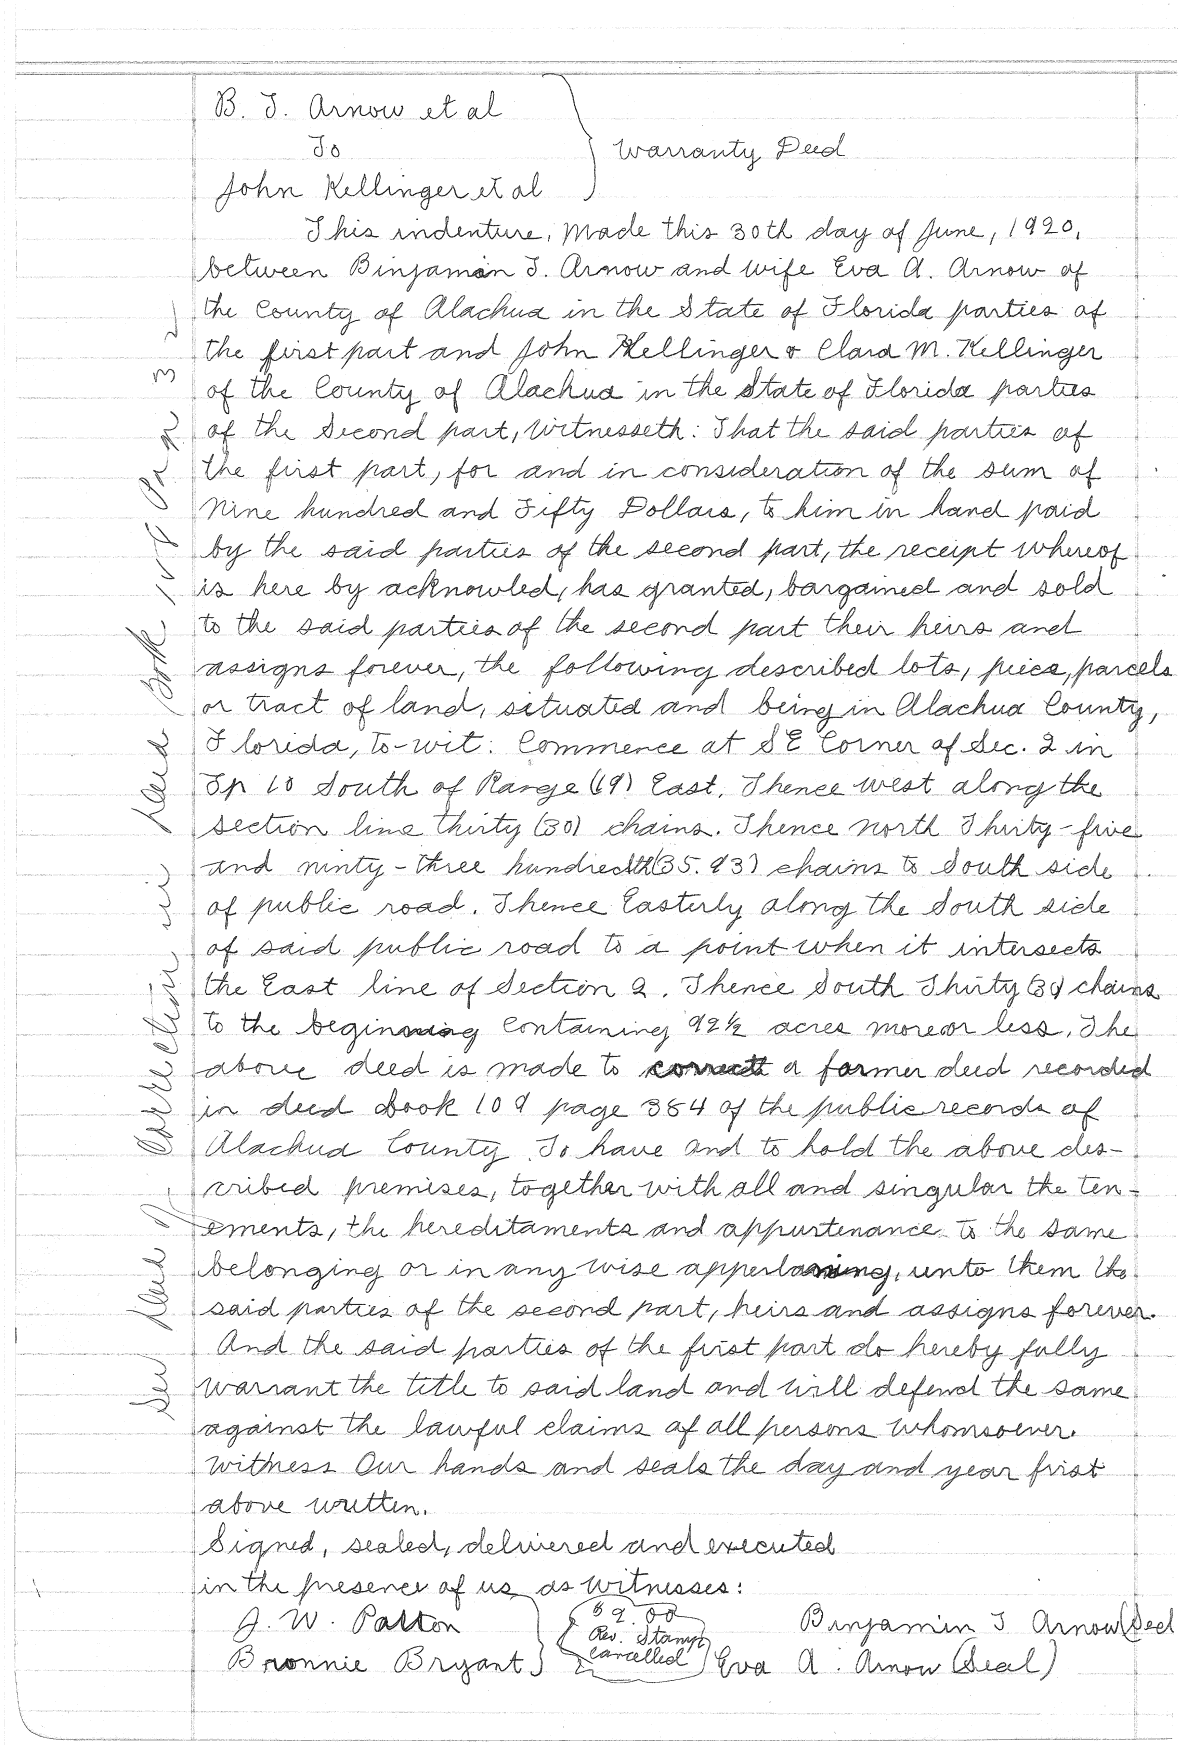 B. J. Arnow et al
To
Warranty Deed
John Kellinger et al
This indenture, Made this 30th day of June, 1920,
between Binjamin J. Arnow and wife Eva A. Arnow of
the County of Alachua in the State of Florida parties of
the first part and John Kellinger & Clara M. Kellinger
of the County of Alachua in the State of Florida parties
of the Second part, Witnesseth: That the said parties of
the first part, for and in consideration of the sum of
Nine hundred and Fifty Dollars, to him in hand paid
by the said parties of the second part, the receipt whereof
is here by acknowled, has granted, bargained and sold
to the said parties of the second part their heirs and
assigns forever, the following described lots, piece, parcels
or tract of land, situated and being in Alachua County,
Florida, to-wit: Commence at SE Corner of Sec. 2 in
Tp 10 South of Range (19) East. Thence west along the
section line thirty (30) chains. Thence north Thirty-five
and ninty-three hundredth (35.93) chains to South side
of public road. Thence Easterly along the South side
of said public road to a point when it intersects
the East line of Section 2. Thence South Thirty (30) chains
to the beginning Containing 92½ acres more or less. The
above deed is made to correct a former deed recorded
in deed book 109 page 384 of the public records of
Alachua County To have and to hold the above des-
cribed premises, together with all and singular the ten-
ements, the hereditaments and appurtenance to the same
belonging or in any wise apperlaning, unto them the
said parties of the second part, heirs and assigns forever.
And the said parties of the first part do hereby fully
warrant the title to said land and will defend the same
against the lawful claims of all persons whomsoever.
Witness Our hands and seals the day and year frist
above written.
Signed, sealed, delivered and executed
in the presence of us as witnesses:
J. W. Patton
Bronnie Bryant
Rev. Stamp
Cancelled
Binjamin J Arnow (Seal
Eva A. Arnow (Seal)
See Deed Correction in Deed Book